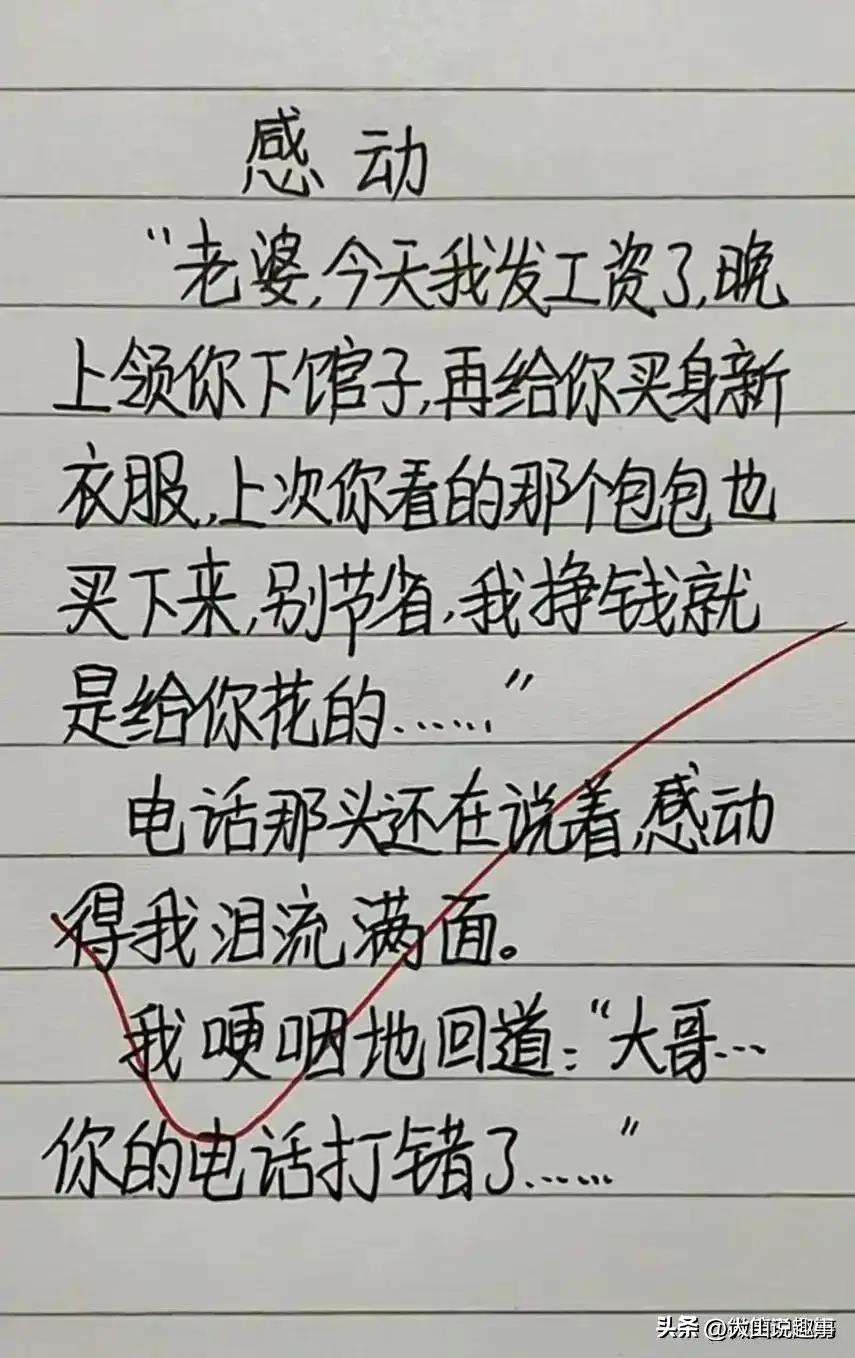 感动
“老婆,今天我发工资了,晚
上领你下馆子,再给你买身新
衣服,上次你看的那个包包也
买下来,别节省,我挣钱就
是给你花的……”
电话那头还在说着,感动
得我泪流满面。
我哽咽地回道:“大哥…
你的电话打错了……”
头条 @
说趣事